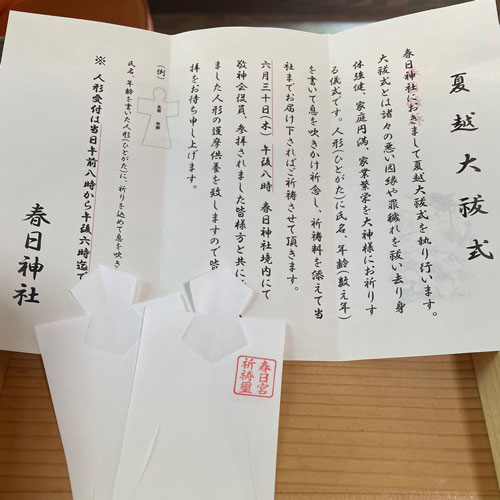 夏越大祓式
春日神社におきまして夏越大祓式を執り行います。
大祓式とは諸々の悪い因縁や罪穢れを祓い去り身
体強健、家庭円満、家業繁栄を大神様にお祈りす
る儀式です。人形(ひとがた)に氏名、年齢(数え年)
を書いて息を吹きかけ祈念し、祈祷料を添えて当
社までお届け下さればご祈祷させて頂きます。
六月三十日(木) 午後八時 春日神社境内にて
敬神会役員、参拝されました皆様方と共に
ました人形の護摩供養を致しますので皆
拝をお待ち申し上げます。
(例)
氏名 年齢
氏名、年齢を書いた人形(ひとがた)に、祈りを込めて息を吹き
※ 人形受付は当日午前八時から午後六時迄で
春日神社
春日宮
祈祷璽